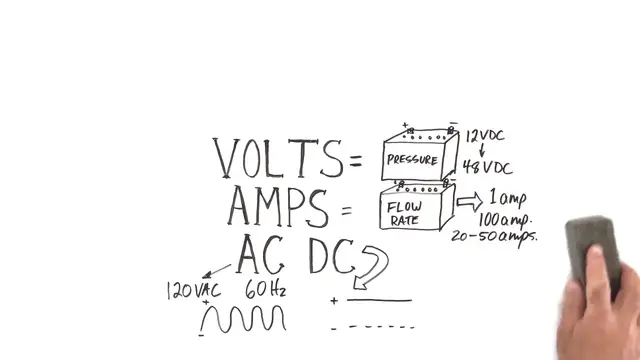 + −
VOLTS = PRESSURE 12VDC
48VDC
AMPS = FLOW RATE 1 amp
100 amp.
20-50 amps.
AC DC
120VAC 60Hz
+ +
- -